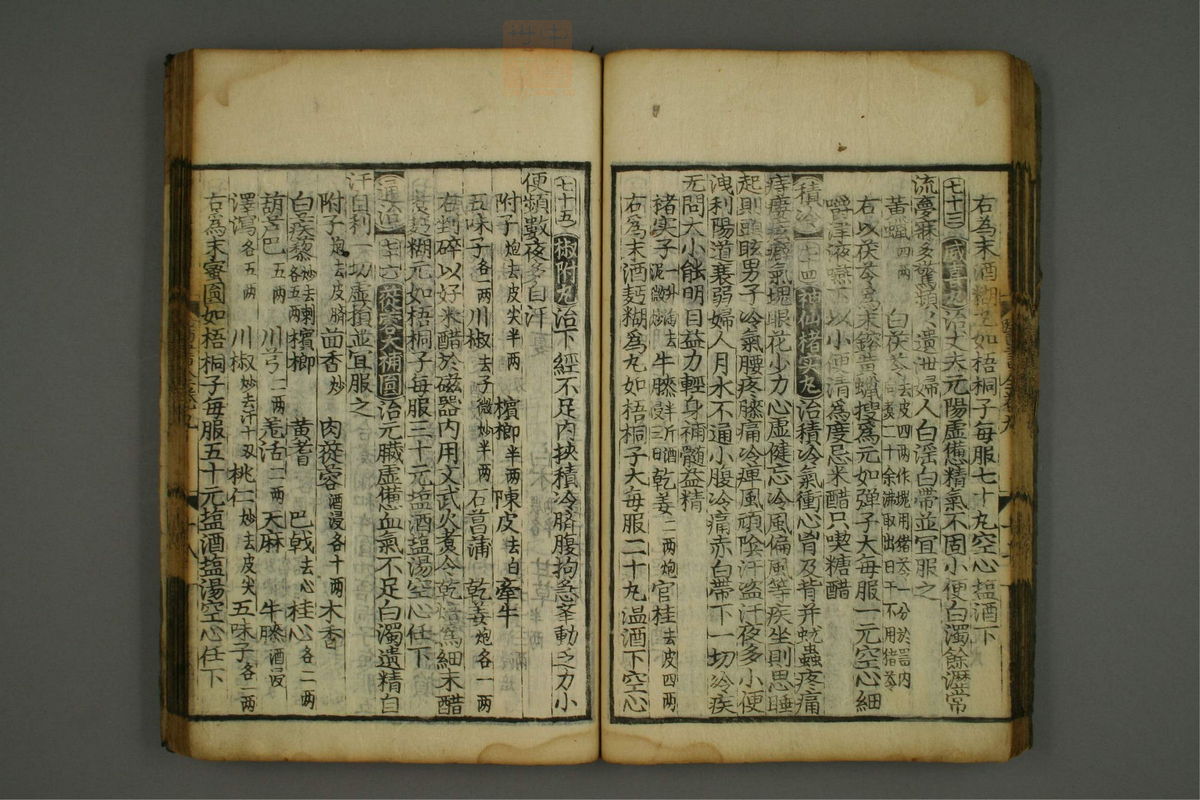 右爲末酒糊丸如梧桐子每服七十丸空心塩酒下
七十三 威喜丸 治丈夫元陽虚憊精氣不固小便白濁餘瀝常
流夢寐多驚頻頻遺泄婦人白淫白帶並冝服之
黄蠟四兩 白茯苓去皮四兩作塊用猪苓一分於噐内同煮二十余沸取出日干不用猪苓
右以茯苓爲末鎔黄蠟搜爲元如弾子大每服一元空心細
嚼津液嚥下以小便清爲度忌米醋只喫糖醋
積冷 七十四 神仙楮实丸 治積冷氣衝心胷及背并蚘蟲疼痛
痔瘻痃癖氣塊眼花少力心虚健忘冷風偏風等疾坐則思睡
起則頭眩男子冷氣腰疼膝痛冷痺風頑陰汗盗汗夜多小便
洩利陽道衰弱婦人月水不通小腹冷痛赤白帶下一切冷疾
无問大小能明目益力輕身補髓益精
楮実子一升 牛膝半斤酒浸三日 乾姜二兩炮 官桂去皮四兩
右爲末酒麪糊爲丸如梧桐子大每服二十丸温酒下空心
七十五 椒附丸 治下經不足内挾積冷臍腹拘急羍動乏力小
便頻數夜多自汗
附子炮去皮尖半兩 檳榔半兩 陳皮去白 牽牛
五味子各一兩 川椒去子微炒半兩 石菖蒲 乾姜炮各一兩
右剉碎以好米醋於磁器内用文武火煑令乾焙爲細末醋
煑麪糊元如梧桐子每服三十元塩酒塩湯空心任下
七十六 蓯蓉大補圓 治元臓虚憊血氣不足白濁遺精自
汗自利一切虚損並冝服之
附子炮去皮臍 茴香炒 肉蓯蓉酒浸各十兩 木香
白疾藜炒去刺各五兩 檳榔 黄耆 巴戟去心 桂心各二兩
葫芦巴五兩 川芎二兩 羌活二兩 天麻 牛膝酒浸
澤瀉各五兩 川椒炒去汁十兩 桃仁炒去皮尖 五味子各一兩
右爲末蜜圓如梧桐子每服五十元塩酒塩湯空心任下